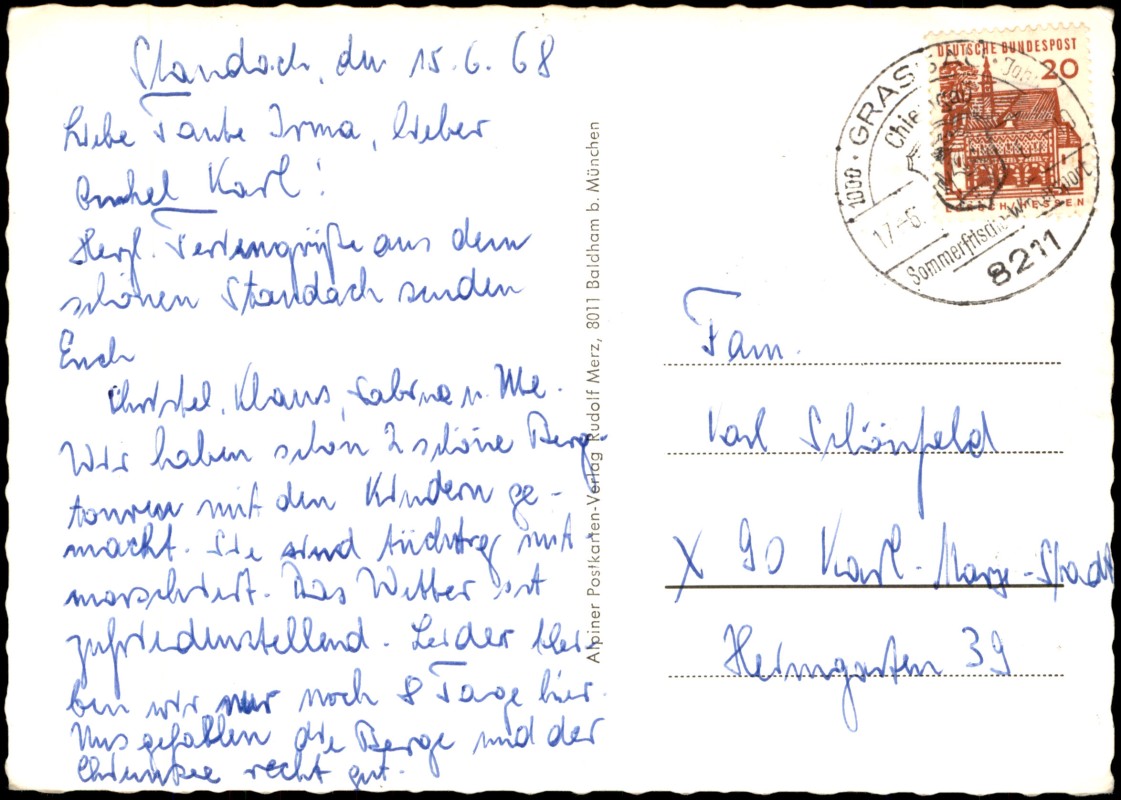 Standach, den 15.6.68
Liebe Tante Irma, lieber
Onkel Karl!
Herzl. Feriengrüße aus dem
schönen Standach senden
Euch
Christel, Klaus, Sabine u. Ute.
Wir haben schon 2 schöne Berg-
touren mit den Kindern ge-
macht. Sie sind tüchtig mit-
marschiert. Das Wetter ist
zufriedenstellend. Leider blei-
ben wir nur noch 8 Tage hier.
Uns gefallen die Berge und der
Chiemsee recht gut.
Alpiner Postkarten-Verlag Rudolf Merz, 8011 Baldham b. München
DEUTSCHE BUNDESPOST
20
LORSCH/HESSEN
1000 · GRASSAU · Jahre
Chiemgau
17.-6.
Sommerfrische-Wintersport
8211
Fam.
Karl Schönfeld
X 90 Karl-Marx-Stadt
Heimgarten 39